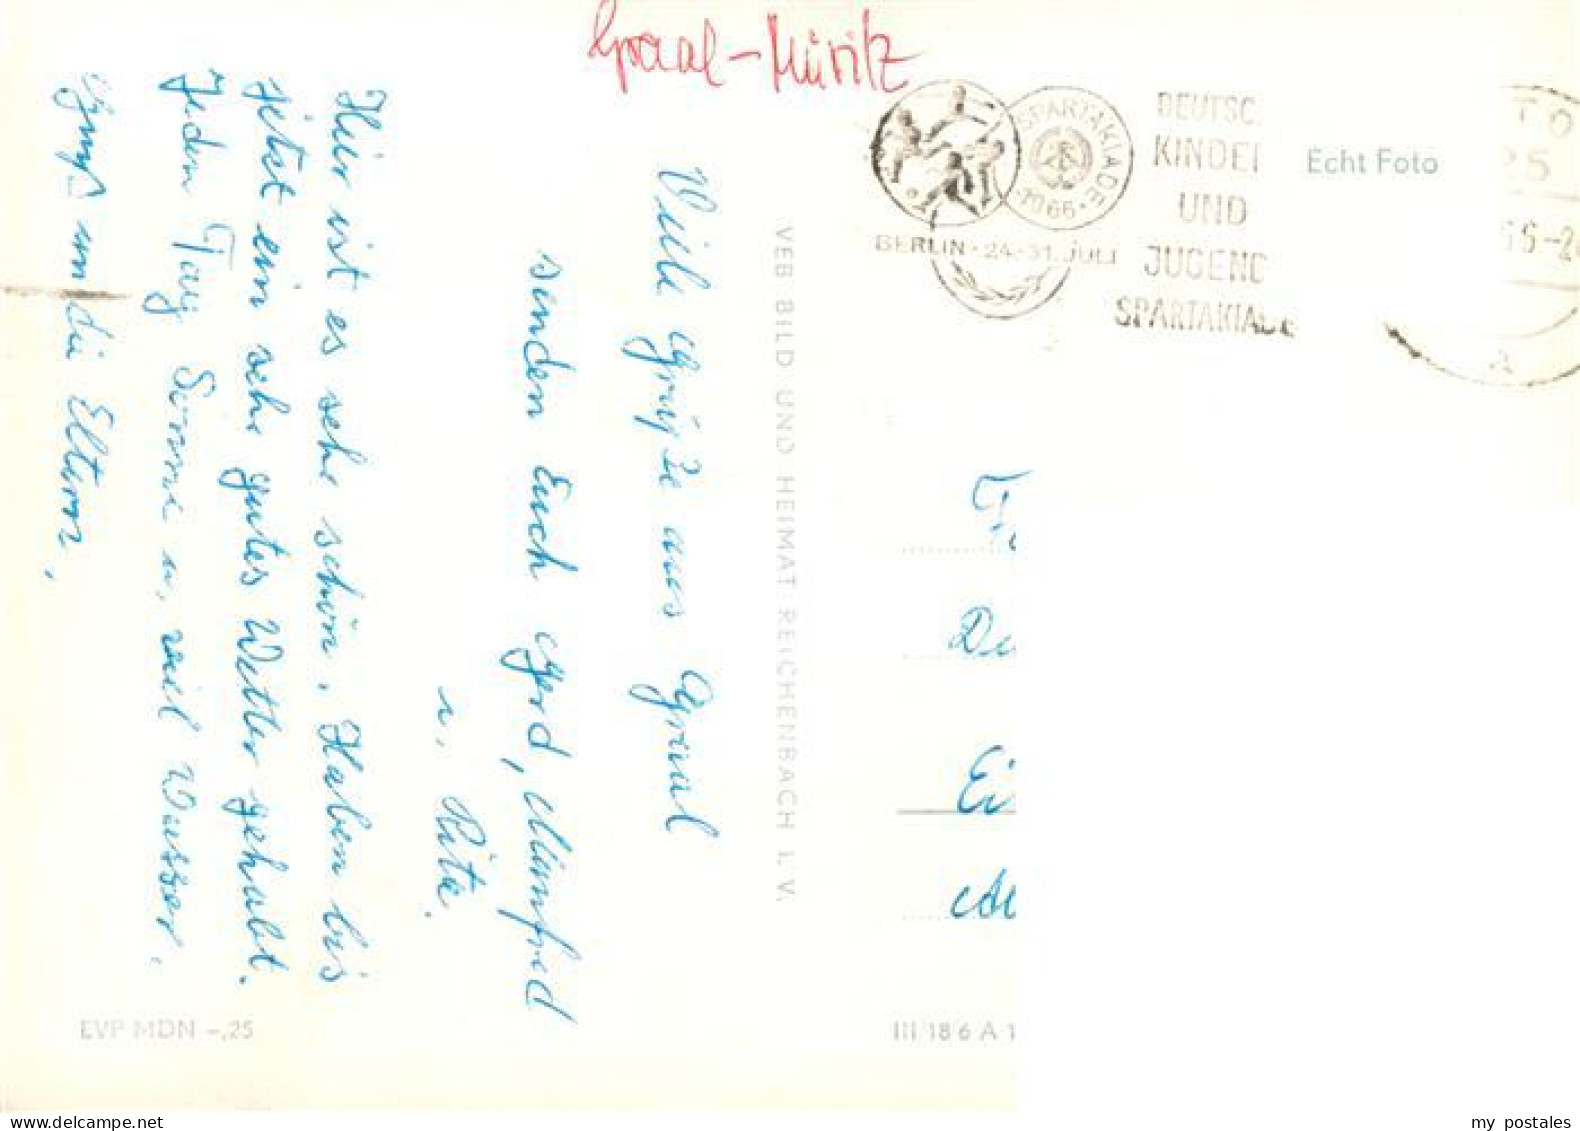 Graal-Müritz
Viele Grüße aus Graal
senden Euch Gerd, Manfred
u. Rita.
Hier ist es sehr schön. Haben bis
jetzt ein sehr gutes Wetter gehabt.
Jeden Tag Sonne u. viel Wasser.
Gruß an die Eltern,
VEB BILD UND HEIMAT REICHENBACH I. V.
EVP MDN -,25
SPARTAKIADE
1966
BERLIN · 24-31. JULI
DEUTSC
KINDE
UND
JUGEND
SPARTAKIADE
Echt Foto
TO
25
66-2
A
Du
Ei
III 18 6 A 1
my postales